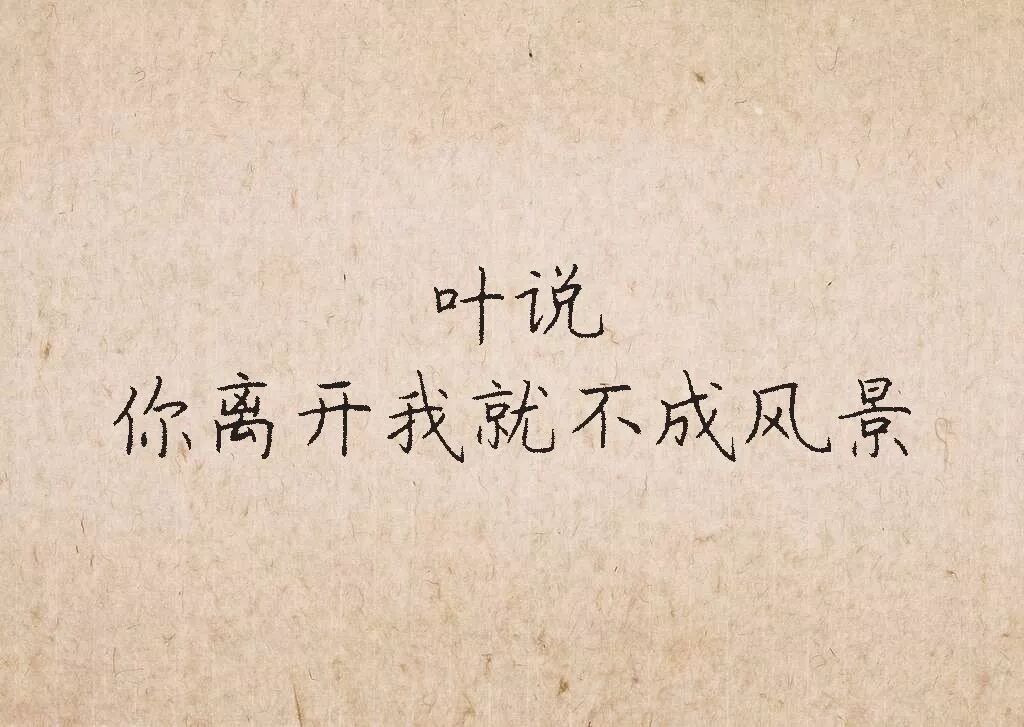 叶说
你离开我就不成风景